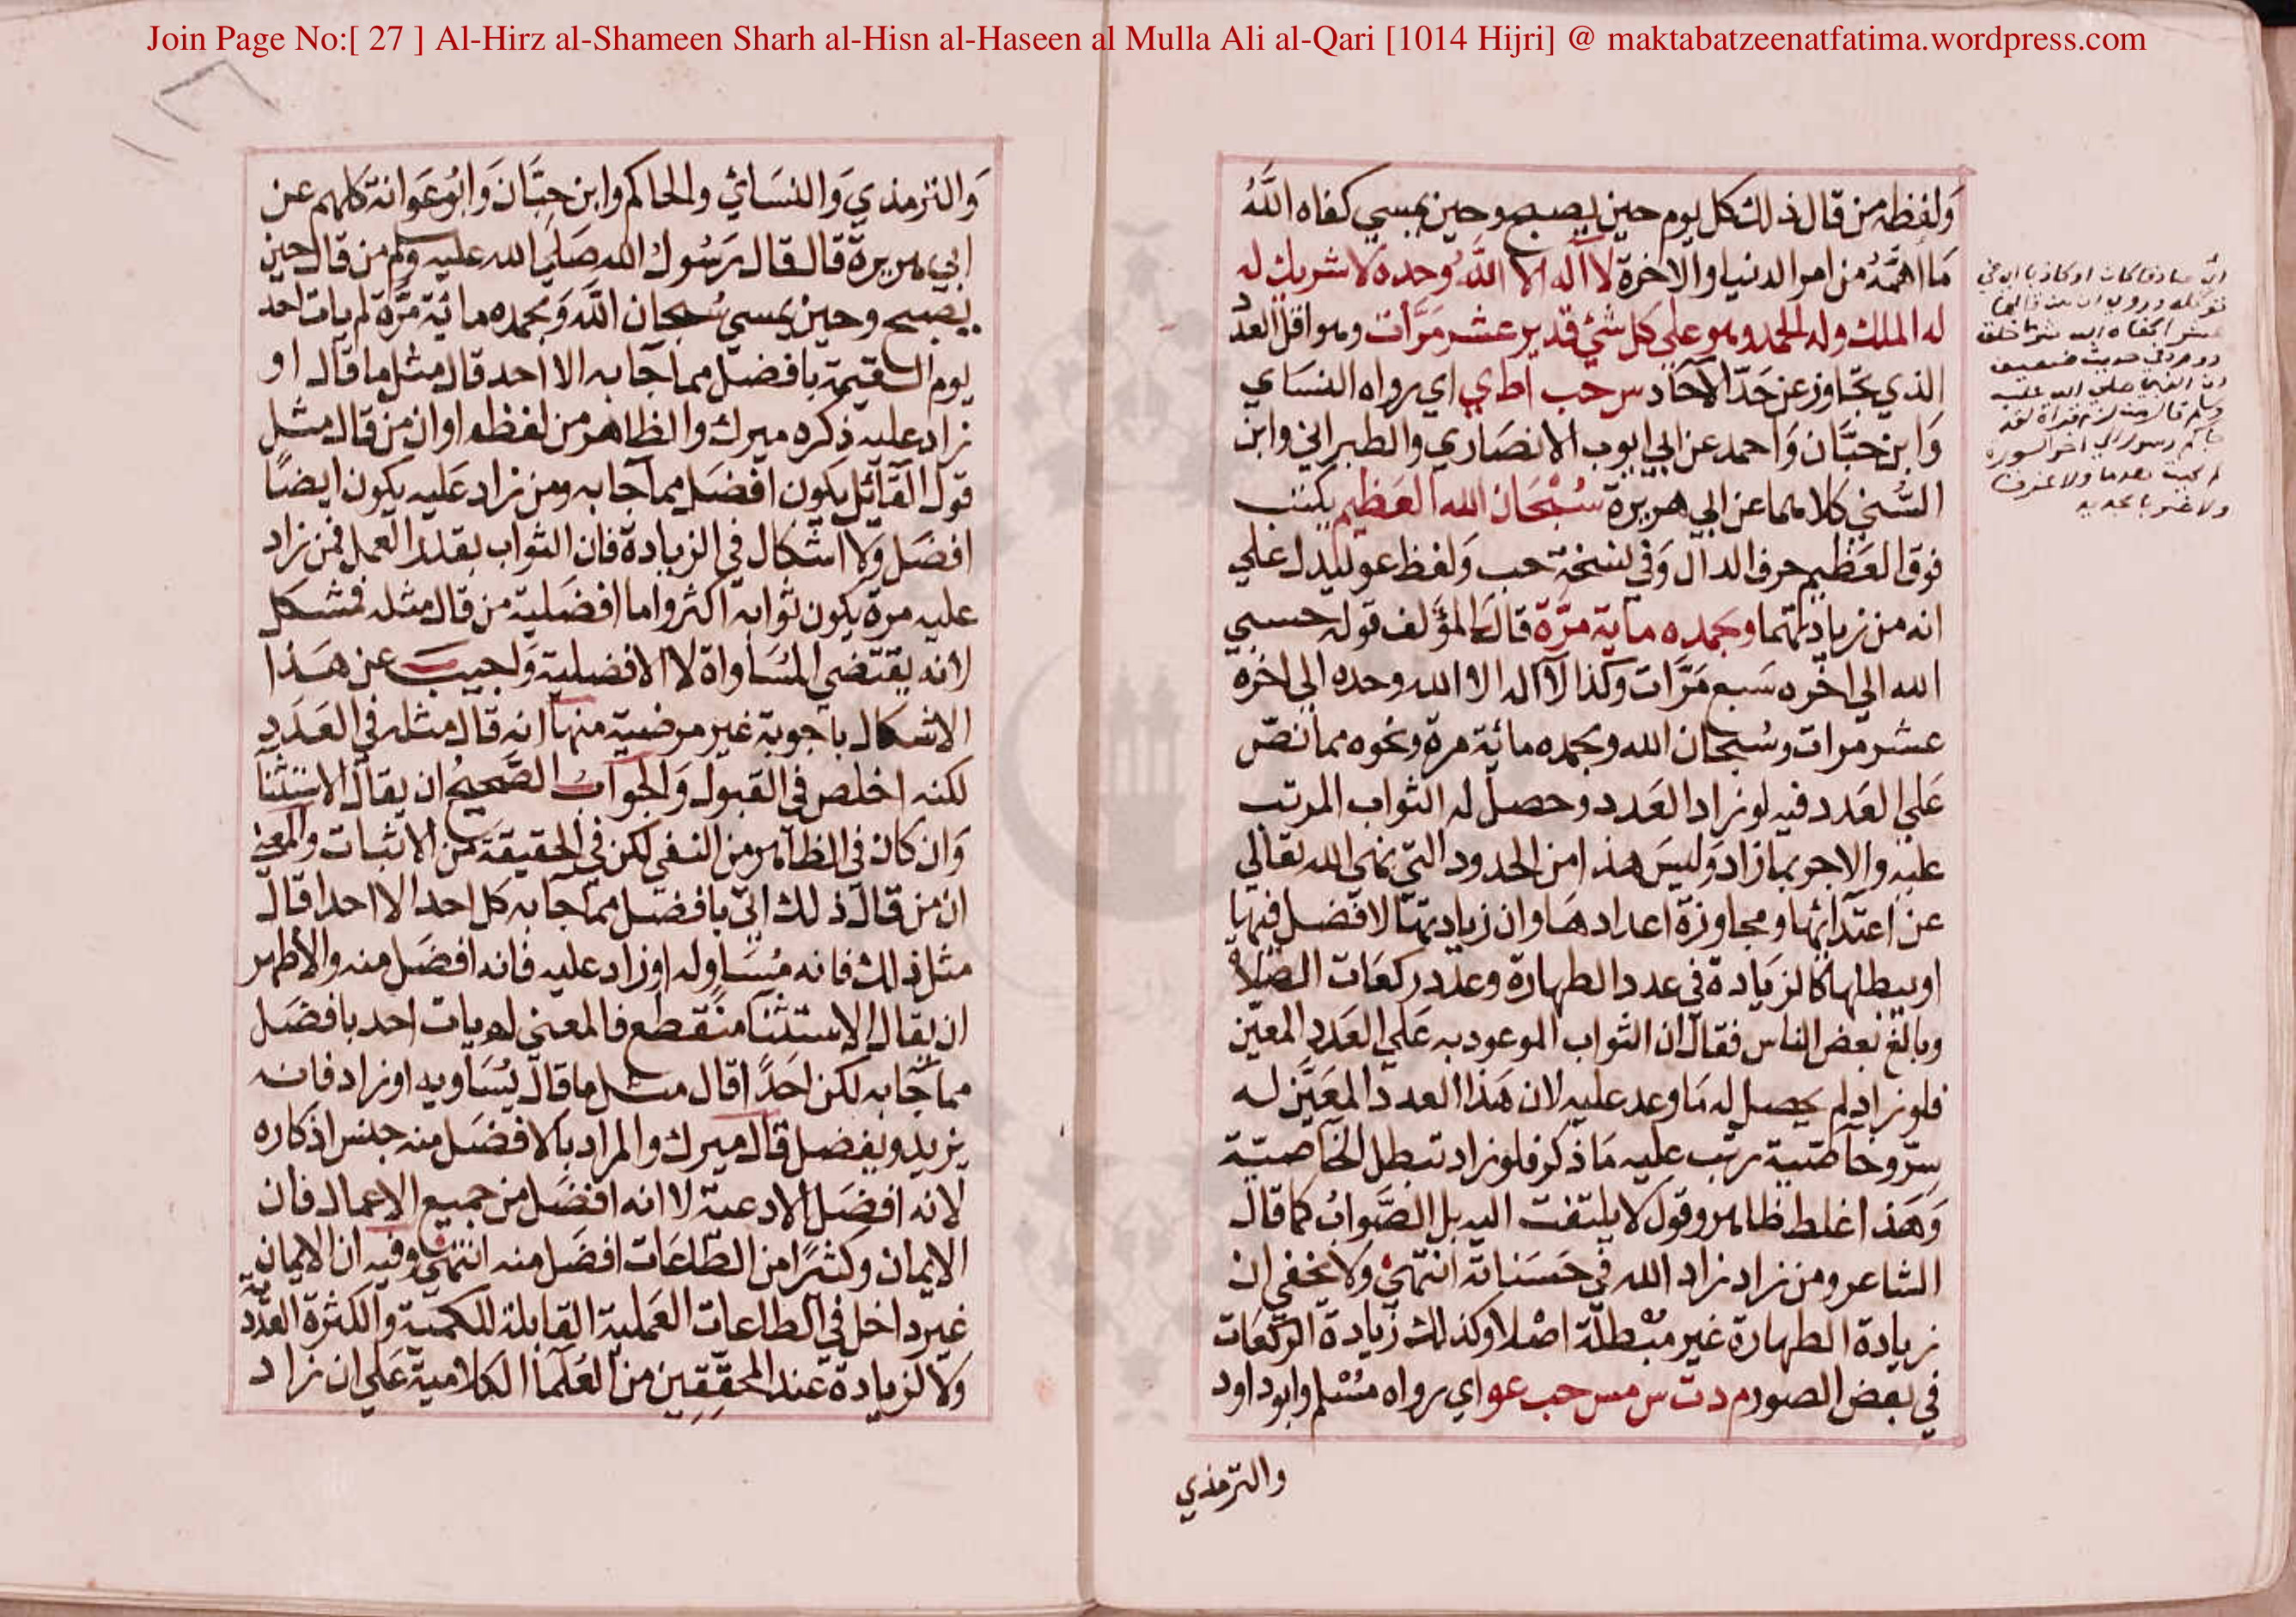 Join Page No:[ 27 ] Al-Hirz al-Shameen Sharh al-Hisn al-Haseen al Mulla Ali al-Qari [1014 Hijri] @ maktabatzeenatfatima.wordpress.com
وَلفظه من قال ذلك كل يوم حين يصبح وحين يمسي كفاه اللَّهُ
مَا اهمَّهُ من امر الدنيا والاخرة لا اله الا اللَّهُ وحده لا شريك له
له الملك وله الحمد وهو علي كل شئ قدير عشر مَرَّات وهو اقل العدد
الذي يتجاوز عن حَدّ الآحاد س حب ا ط ي اي رواه النسَاي
وَابن حبَّان وَاحمد عن ابي ايوب الانصَاري والطبراني وابن
السُّني كلاهما عن ابي هريرة سُبْحَان الله العَظيم يكتب
فوق العَظيم حرف الدال وَفي نسخة حب وَلفظ عو ليدل علي
انه من زيادتهما وبحمده ماية مرَّة قال المؤَلف قوله حسبي
الله الي اخره سَبع مَرَّات وكذا لا اله الا الله وحده الي اخره
عشر مرات وسُبحان الله وبحمده مائة مرة ونحوه مما نصّ
عَلي العَدد فيه لو زاد العَدد وحصل له الثواب المرتب
عليه والاجر بما زاد وَليسَ هذا من الحدود التي نهي الله تعالي
عن اعتدائها ومجاوزة اعدادهَا وان زيادتها لا فضل فيها
او يبطلها كالزيَادة في عدد الطهارة وعدد ركعَات الصَّلاة
وبالغ بعض الناس فقال ان الثواب الموعود به عَلي العَدد المعيّن
فلو زاد لم يحصل له مَا وعد عليه لان هَذا العدد المعَيَّن له
سِرّ وخاصّية رتب عليه مَا ذكر فلو زاد تبطل الخاصيّة
وَهَذا غلط ظاهر وقول لا يلتفت اليه بل الصَّوابُ كما قال
الشاعر ومن زاد زاد الله في حَسَناته انتهيٰ وَلا يخفي ان
زيادة الطهارة غير مبْطلة اصْلا وكذلك زيادة الرّكعَات
في بعض الصور م د ت س مس حب عو اي رواه مسْلم وابو داود
والترمذي
وَالترمذي وَالنسَائي والحاكم وابن حِبَّان وَابُو عَوَانة كلهم عن
ابي هريرة قال قال رَسُول الله صَلي الله عليه وسلم من قال حين
يصبح وحين يمسي سُبحان اللَّه وَبحمده مائة مَرَّة لم يات احد
يوم القيمة بافضل مما جا به الا احد قال مثل ما قال او
زاد عليه ذكره ميرك والظاهر من لفظه اوان من قال مثل
قول القآئل يكون افضل مما جا به ومن زاد عَليه يكون ايضًا
افضَل وَلا اشكال في الزيادة فان الثواب بقدر العمل فمن زاد
عليه مرة يكون ثوابه اكثر واما افضَلية من قال مثله فمشكل
لانه يقتضي المُسَاواة لا الافضلية وَاجيبَ عن هَذا
الاشكال باجوبة غير مرضية منها انه قال مثله في العَدَد
لكنه اخلص في القبول وَالجوابُ الصَّحيحُ ان يقال الاستثنا
وَان كان في الظاهر من النفي لكن في الحقيقة من الاثبات والمعني
ان من قال ذلك اتي بافضل مما جا به كل احد الا احدا قال
مثل ذلك فانه مُسَاوله او زاد عليه فانه افضَل منه والاظهر
ان يقال الاستثنا منقطع فالمعني لم يات احد بافضَل
مما جا به لكن احَدًا قال مثل ما قال يُسَاويه او زاد فانه
يزيد ويفضل قال ميرك والمراد بالافضَل منه جنس اذكاره
لانه افضَل الادعية لا انه افضَل من جميع الاعمال فان
الايمان وكثيرًا من الطاعَات افضَل منه انتهيٰ وفيه ان الايمان
غير داخل في الطاعات العَملية القابلة للكمية والكثرة العَدَدية
وَلا لزيادة عند المحقّقين من العُلمَا الكلامية عَلي ان زاد